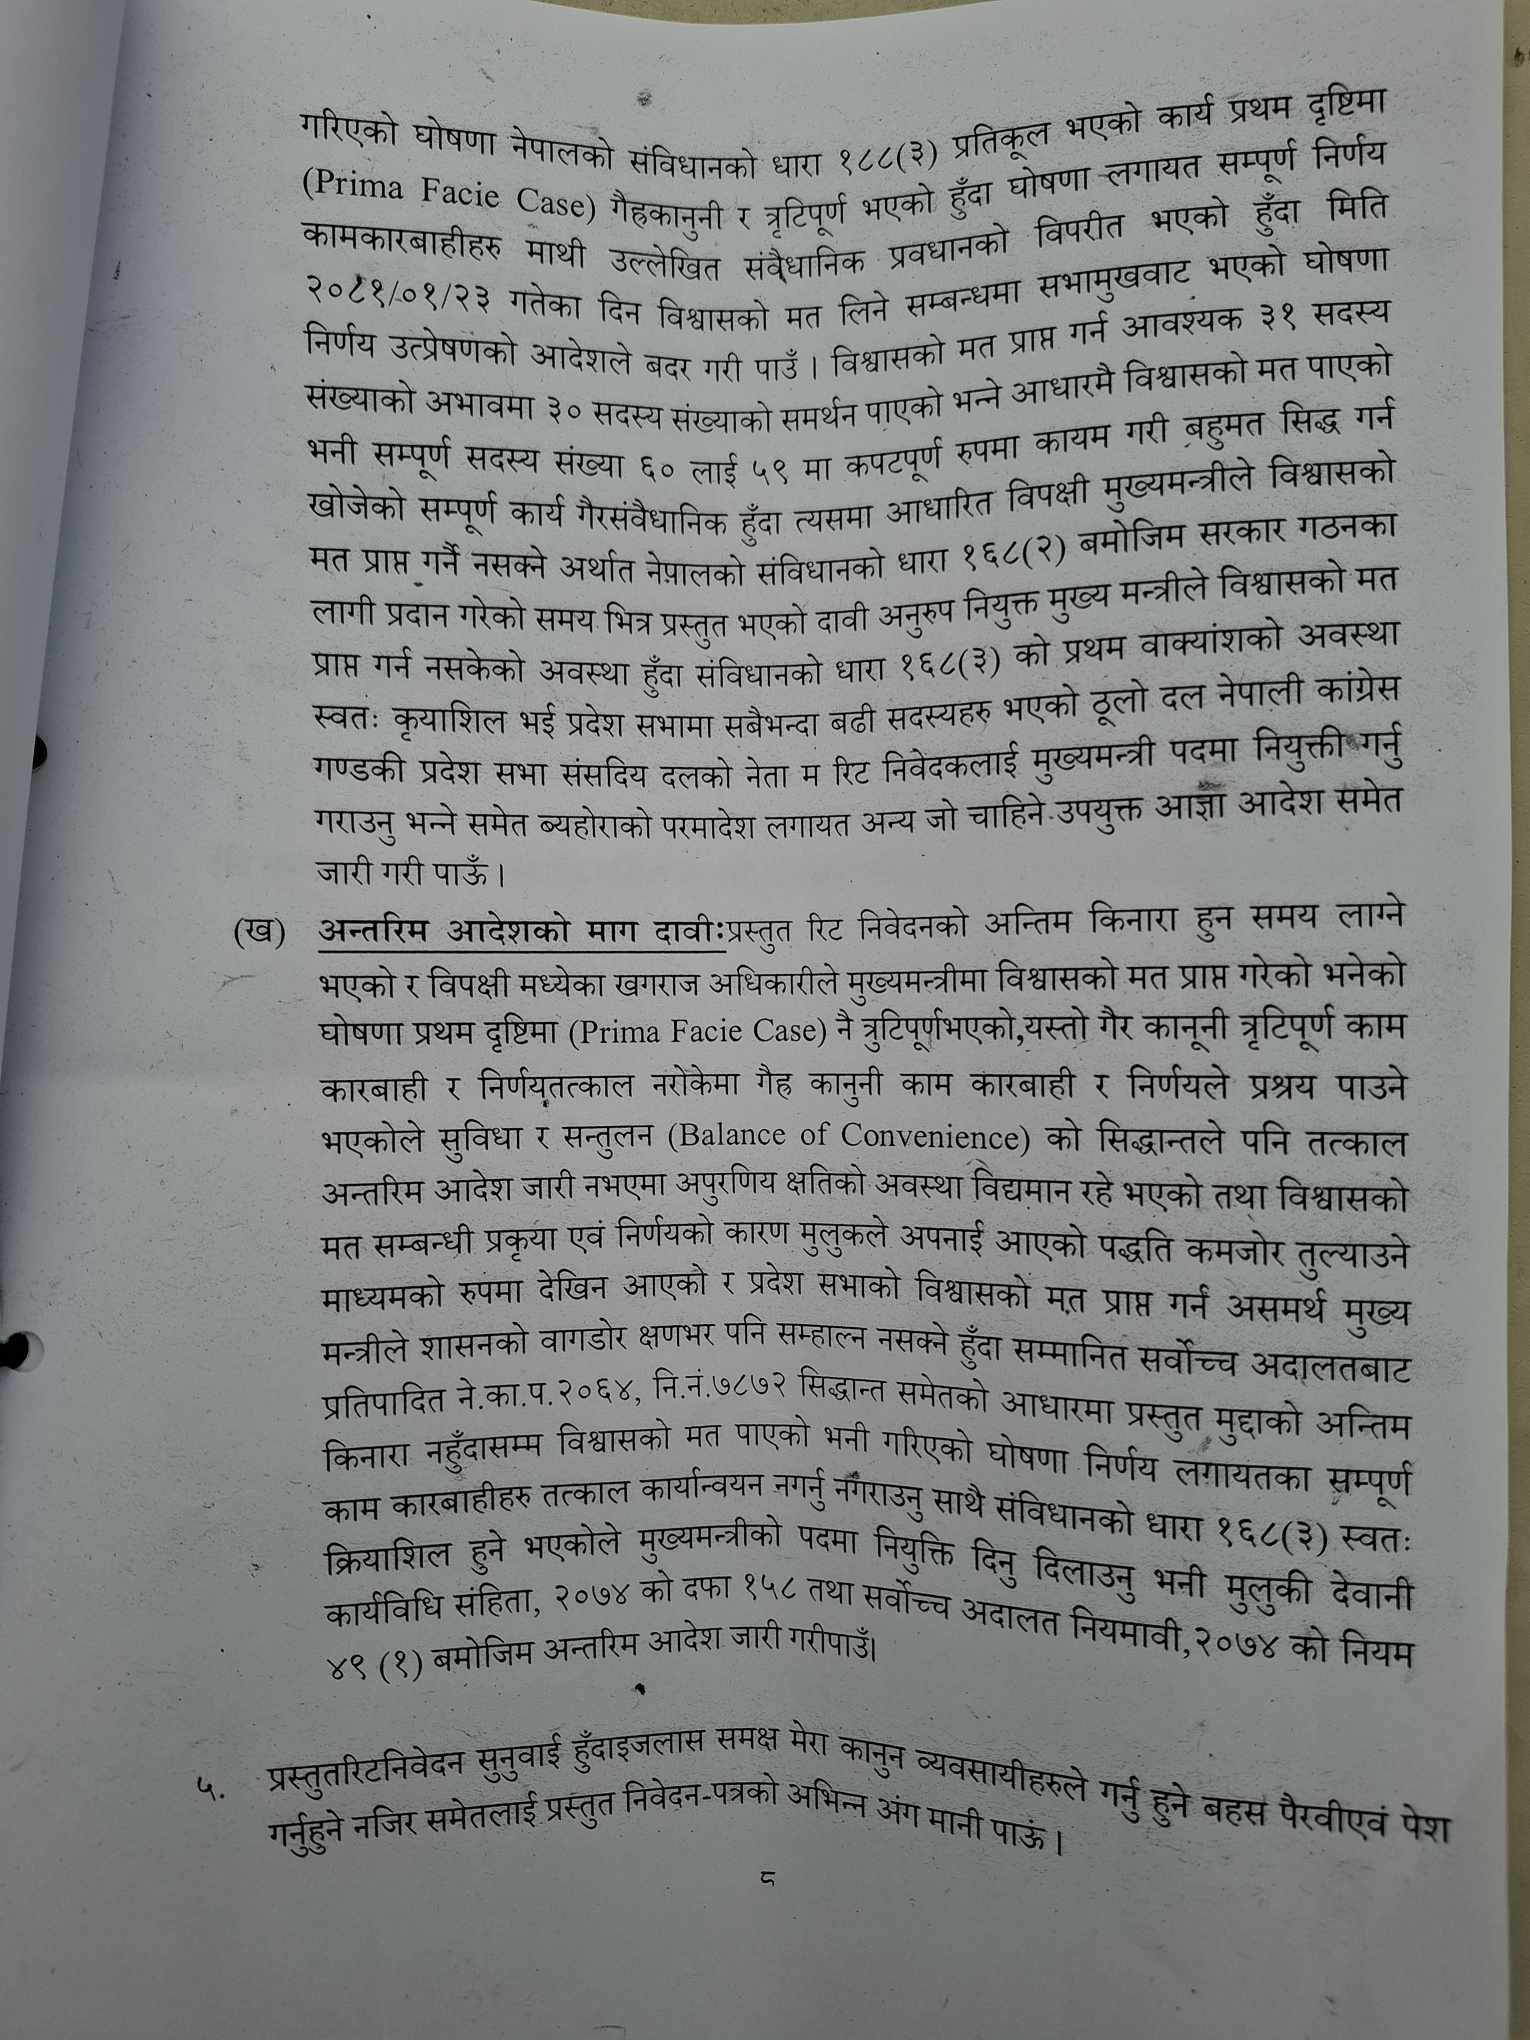 गरिएको घोषणा नेपालको संविधानको धारा १८८(३) प्रतिकूल भएको कार्य प्रथम दृष्टिमा
(Prima Facie Case) गैह्रकानुनी र त्रृटिपूर्ण भएको हुँदा घोषणा लगायत सम्पूर्ण निर्णय
कामकारबाहीहरु माथी उल्लेखित संवैधानिक प्रवधानको विपरीत भएको हुँदा मिति
२०८१/०१/२३ गतेका दिन विश्वासको मत लिने सम्बन्धमा सभामुखवाट भएको घोषणा
निर्णय उत्प्रेषणको आदेशले बदर गरी पाउँ । विश्वासको मत प्राप्त गर्न आवश्यक ३१ सदस्य
संख्याको अभावमा ३० सदस्य संख्याको समर्थन पाएको भन्ने आधारमै विश्वासको मत पाएको
भनी सम्पूर्ण सदस्य संख्या ६० लाई ५९ मा कपटपूर्ण रुपमा कायम गरी बहुमत सिद्ध गर्न
खोजेको सम्पूर्ण कार्य गैरसंवैधानिक हुँदा त्यसमा आधारित विपक्षी मुख्यमन्त्रीले विश्वासको
मत प्राप्त गर्नै नसक्ने अर्थात नेपालको संविधानको धारा १६८(२) बमोजिम सरकार गठनका
लागी प्रदान गरेको समय भित्र प्रस्तुत भएको दावी अनुरुप नियुक्त मुख्य मन्त्रीले विश्वासको मत
प्राप्त गर्न नसकेको अवस्था हुँदा संविधानको धारा १६८(३) को प्रथम वाक्यांशको अवस्था
स्वतः कृयाशिल भई प्रदेश सभामा सबैभन्दा बढी सदस्यहरु भएको ठूलो दल नेपाली कांग्रेस
गण्डकी प्रदेश सभा संसदिय दलको नेता म रिट निवेदकलाई मुख्यमन्त्री पदमा नियुक्ती गर्नु
गराउनु भन्ने समेत ब्यहोराको परमादेश लगायत अन्य जो चाहिने उपयुक्त आज्ञा आदेश समेत
जारी गरी पाऊँ ।
(ख) अन्तरिम आदेशको माग दावीःप्रस्तुत रिट निवेदनको अन्तिम किनारा हुन समय लाग्ने
भएको र विपक्षी मध्येका खगराज अधिकारीले मुख्यमन्त्रीमा विश्वासको मत प्राप्त गरेको भनेको
घोषणा प्रथम दृष्टिमा (Prima Facie Case) नै त्रुटिपूर्णभएको,यस्तो गैर कानूनी त्रृटिपूर्ण काम
कारबाही र निर्णयतत्काल नरोकेमा गैह्र कानुनी काम कारबाही र निर्णयले प्रश्रय पाउने
भएकोले सुविधा र सन्तुलन (Balance of Convenience) को सिद्धान्तले पनि तत्काल
अन्तरिम आदेश जारी नभएमा अपुरणिय क्षतिको अवस्था विद्यमान रहे भएको तथा विश्वासको
मत सम्बन्धी प्रकृया एवं निर्णयको कारण मुलुकले अपनाई आएको पद्धति कमजोर तुल्याउने
माध्यमको रुपमा देखिन आएको र प्रदेश सभाको विश्वासको मत प्राप्त गर्न असमर्थ मुख्य
मन्त्रीले शासनको वागडोर क्षणभर पनि सम्हाल्न नसक्ने हुँदा सम्मानित सर्वोच्च अदालतबाट
प्रतिपादित ने.का.प.२०६४, नि.नं.७८७२ सिद्धान्त समेतको आधारमा प्रस्तुत मुद्दाको अन्तिम
किनारा नहुँदासम्म विश्वासको मत पाएको भनी गरिएको घोषणा निर्णय लगायतका सम्पूर्ण
काम कारबाहीहरु तत्काल कार्यान्वयन नगर्नु नगराउनु साथै संविधानको धारा १६८(३) स्वतः
क्रियाशिल हुने भएकोले मुख्यमन्त्रीको पदमा नियुक्ति दिनु दिलाउनु भनी मुलुकी देवानी
कार्यविधि संहिता, २०७४ को दफा १५८ तथा सर्वोच्च अदालत नियमावी,२०७४ को नियम
४९ (१) बमोजिम अन्तरिम आदेश जारी गरीपाउँ।
५. प्रस्तुतरिटनिवेदन सुनुवाई हुँदाइजलास समक्ष मेरा कानुन व्यवसायीहरुले गर्नु हुने बहस पैरवीएवं पेश
गर्नुहुने नजिर समेतलाई प्रस्तुत निवेदन-पत्रको अभिन्न अंग मानी पाऊं ।
८